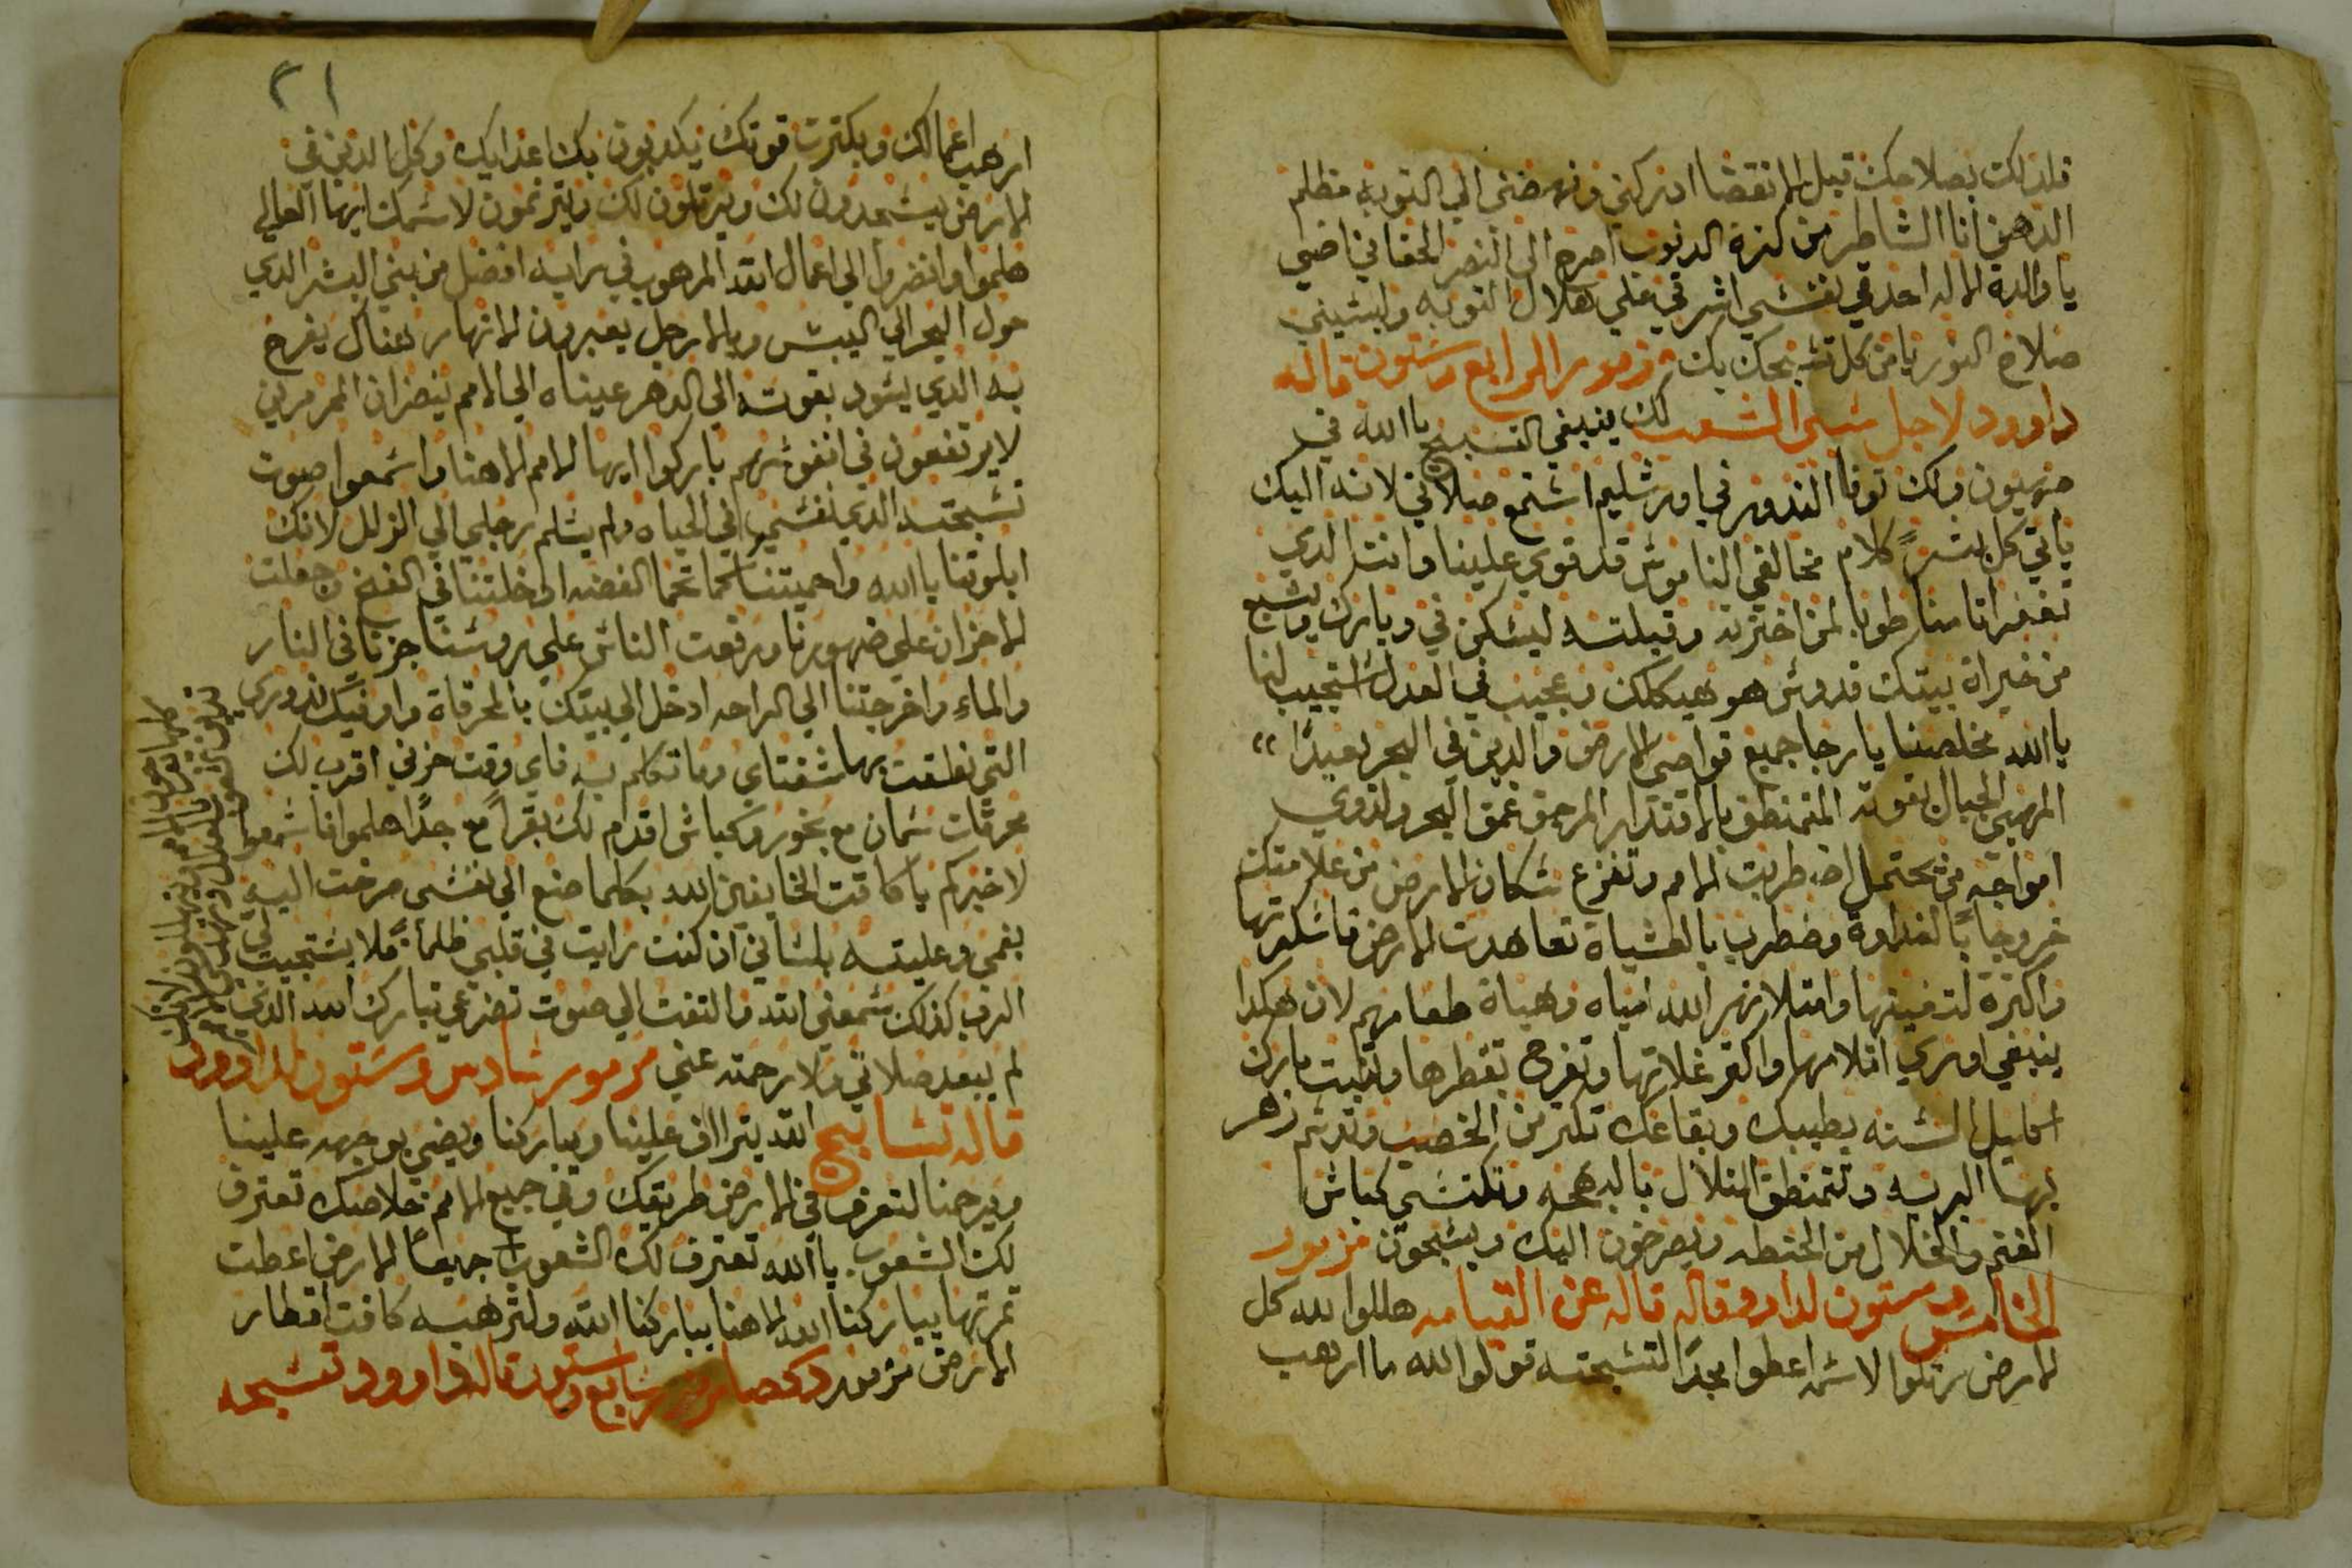 فلدلك بصلاحك قبل الانقضا ادركني ونهضني الي التوبه مظلم
الدهن انا الشاطر من كثرة الدنوب اصرخ الى النصر الحقاني اضي
يا والدة الاله احدقي نفسي اشرقي علي هلال التوبه ولبسيني
صلاح النور يا من كل تسبحك بك مزمور الرابع وستون قاله
داوود لاجل سبي الشعب لك ينبغي التسبيح يا الله في
صهيون ولك توفا الندور في اورشليم استمع صلاتي لانه اليك
ياتي كل بشر كلام مخالفي الناموس قد قوي علينا وانت الدي
تغفر اتامنا طوبا لمن اخترته وقبلته ليسكن في ديارك ويشبع
من خيراة بيتك قدوس هو هيكلك وعجيب في العدل استجيب لنا
يا الله مخلصنا يا رجا جميع قواصي الارض والدين في البحر بعيدًا
المهيي الجبال بقوته المتمنطق بالاقتدار المرجف عمق البحر ولدوي
امواجه من يحتمل اضطربت الامم وتفزع سكان الارض من علامتك
خروجاً بالغداوة وضطرب بالعشياة تعاهدت الارض فاسكرتها
واكترة لتدفيتها وامتلا نهر الله امياه وهياة طعامهم لان هكدا
ينبغي اوري اتلامها واكثر غلاتها وتفرح بقطرها وتنبت بارك
اكليل السنه بطيبك وبقاعك تكتر من الخصب وتدسم زهر
بهـا البريه وتتمنطق التلال بالبهجه وتكتسي كباش
الغنم والغلال من الحنطه ويصرخون اليك ويسبحون مزمور
الخامس وستون لداوود قاله عن القيامه هللوا لله كل
الارض رتلوا لاسمه اعطوا مجدًا لتسبحته قولوا لله ما ارهب
٢١
ارهب اعمالك وبكترت قوتك يكدبون بك اعدايك وكل الدين في
الارض يسجدون لك ويرتلون لك ويترنمون لاسمك ايها العالي
هلموا وانضروا الي اعمال الله المرهوب في رايه افضل من بني البشر الدي
حول البحر الي اليبس وبالارجل يعبرون الانهار هناك يفرح
به الدي يسود بقوته الي الدهر عيناه الي الامم ينضران المرمرين
لا يرتفعون في انفوسهم باركوا ايها الامم الاهنا واسمعوا صوت
تسبحته الدي نفسي في الحياه ولم يسلم رجلي الي الزلل لانك
ابلوتنا يا الله واحميتنا كما تحما الفضه ادخلتنا في الفخ وجعلت
الاحزان علي ضهورنا ورفعت الناس علي روسنا جزنا في النار
والماء واخرجتنا الي الراحه ادخل الي بيتك بالمحرقاة واوفيك ندوري
التي نطقت بها شفتاي وما تكلم به فاي وقت حزني اقرب لك
محرقات سمان مع بخور وكباش اقدم لك بقراً مع جداً هلموا فاسمعوا
لاخبركم يا كافت الخايفين الله بكلما صنع الي نفسي صرخت اليه
بفمي وعليته بلساني ان كنت رايت في قلبي ظلماً فلا يستجيب لي
الرب كدلك سمعني الله والتفت الي صوت تضرعي تبارك الله الدي
لم يبعد صلاتي ولا رحمته عني مزمور سادس وستون لداوود
قاله تسابيح الله يتراف علينا ويباركنا ويضي بوجهه علينا
ويرحمنا لتعرف في الارض طريقك وفي جميع الامم خلاصك تعترف
لك الشعوب يا الله تعترف لك الشعوب جميعاً الارض اعطت
تمرتها يباركنا الله الاهنا يباركنا الله ولترهبه كافت اقطار
الارض مزمور سابع وستون قاله داوود تسبحه